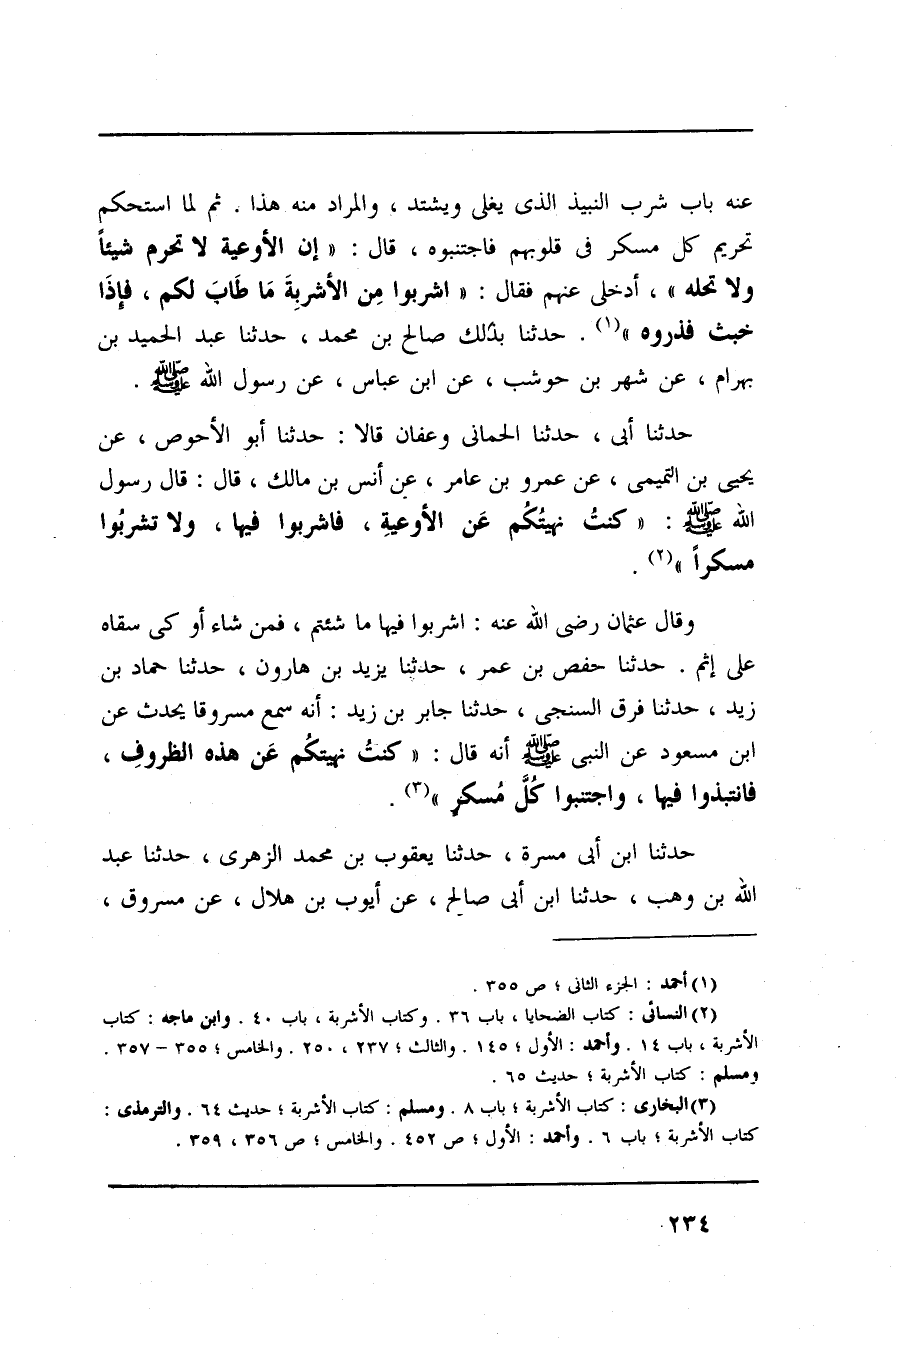 عنه باب شرب النبيذ الذى يغلى ويشتد ، والمراد منه هذا . ثم لما استحكم
تحريم كل مسكر فى قلوبهم فاجتنبوه ، قال : « إن الأوعية لا تحرم شيئاً
ولا تحله » ، أدخلى عنهم فقال : « اشربوا مِن الأشربةَ مَا طَابَ لكم ، فإذَا
خبث فذروه »(١) . حدثنا بذلك صالح بن محمد ، حدثنا عبد الحميد بن
بهرام ، عن شهر بن حوشب ، عن ابن عباس ، عن رسول الله ﷺ .
حدثنا أبى ، حدثنا الحمانى وعفان قالا : حدثنا أبو الأحوص ، عن
يحيى بن التميمى ، عن عمرو بن عامر ، عن أنس بن مالك ، قال : قال رسول
الله ﷺ : « كنتُ نهيتُكُم عَن الأوعيةِ ، فاشربوا فيها ، ولا تشربُوا
مسكراً »(٢) .
وقال عثمان رضى الله عنه : اشربوا فيها ما شئتم ، فمن شاء أو كى سقاه
على إثم . حدثنا حفص بن عمر ، حدثنا يزيد بن هارون ، حدثنا حماد بن
زيد ، حدثنا فرق السنجى ، حدثنا جابر بن زيد : أنه سمع مسروقا يحدث عن
ابن مسعود عن النبى ﷺ أنه قال : « كنتُ نهيتكُم عَن هذه الظروفِ ،
فانتبذوا فيها ، واجتنبوا كُلَّ مُسكرٍ »(٣) .
حدثنا ابن أبى مسرة ، حدثنا يعقوب بن محمد الزهرى ، حدثنا عبد
الله بن وهب ، حدثنا ابن أبى صالح ، عن أيوب بن هلال ، عن مسروق ،
(١) أحمد : الجزء الثانى ؛ ص ٣٥٥ .
(٢) النسائى : كتاب الضحايا ، باب ٣٦ . وكتاب الأشربة ، باب ٤٠ . وابن ماجه : كتاب
الأشربة ، باب ١٤ . وأحمد : الأول ؛ ١٤٥ . والثالث ؛ ٢٣٧ ، ٢٥٠ . والخامس ؛ ٣٥٥ – ٣٥٧ .
ومسلم : كتاب الأشربة ؛ حديث ٦٥ .
(٣) البخارى : كتاب الأشربة ؛ باب ٨ . ومسلم : كتاب الأشربة ؛ حديث ٦٤ . والترمذى :
كتاب الأشربة ؛ باب ٦ . وأحمد : الأول ؛ ص ٤٥٢ . والخامس ؛ ص ٣٥٦ ، ٣٥٩ .
٢٣٤